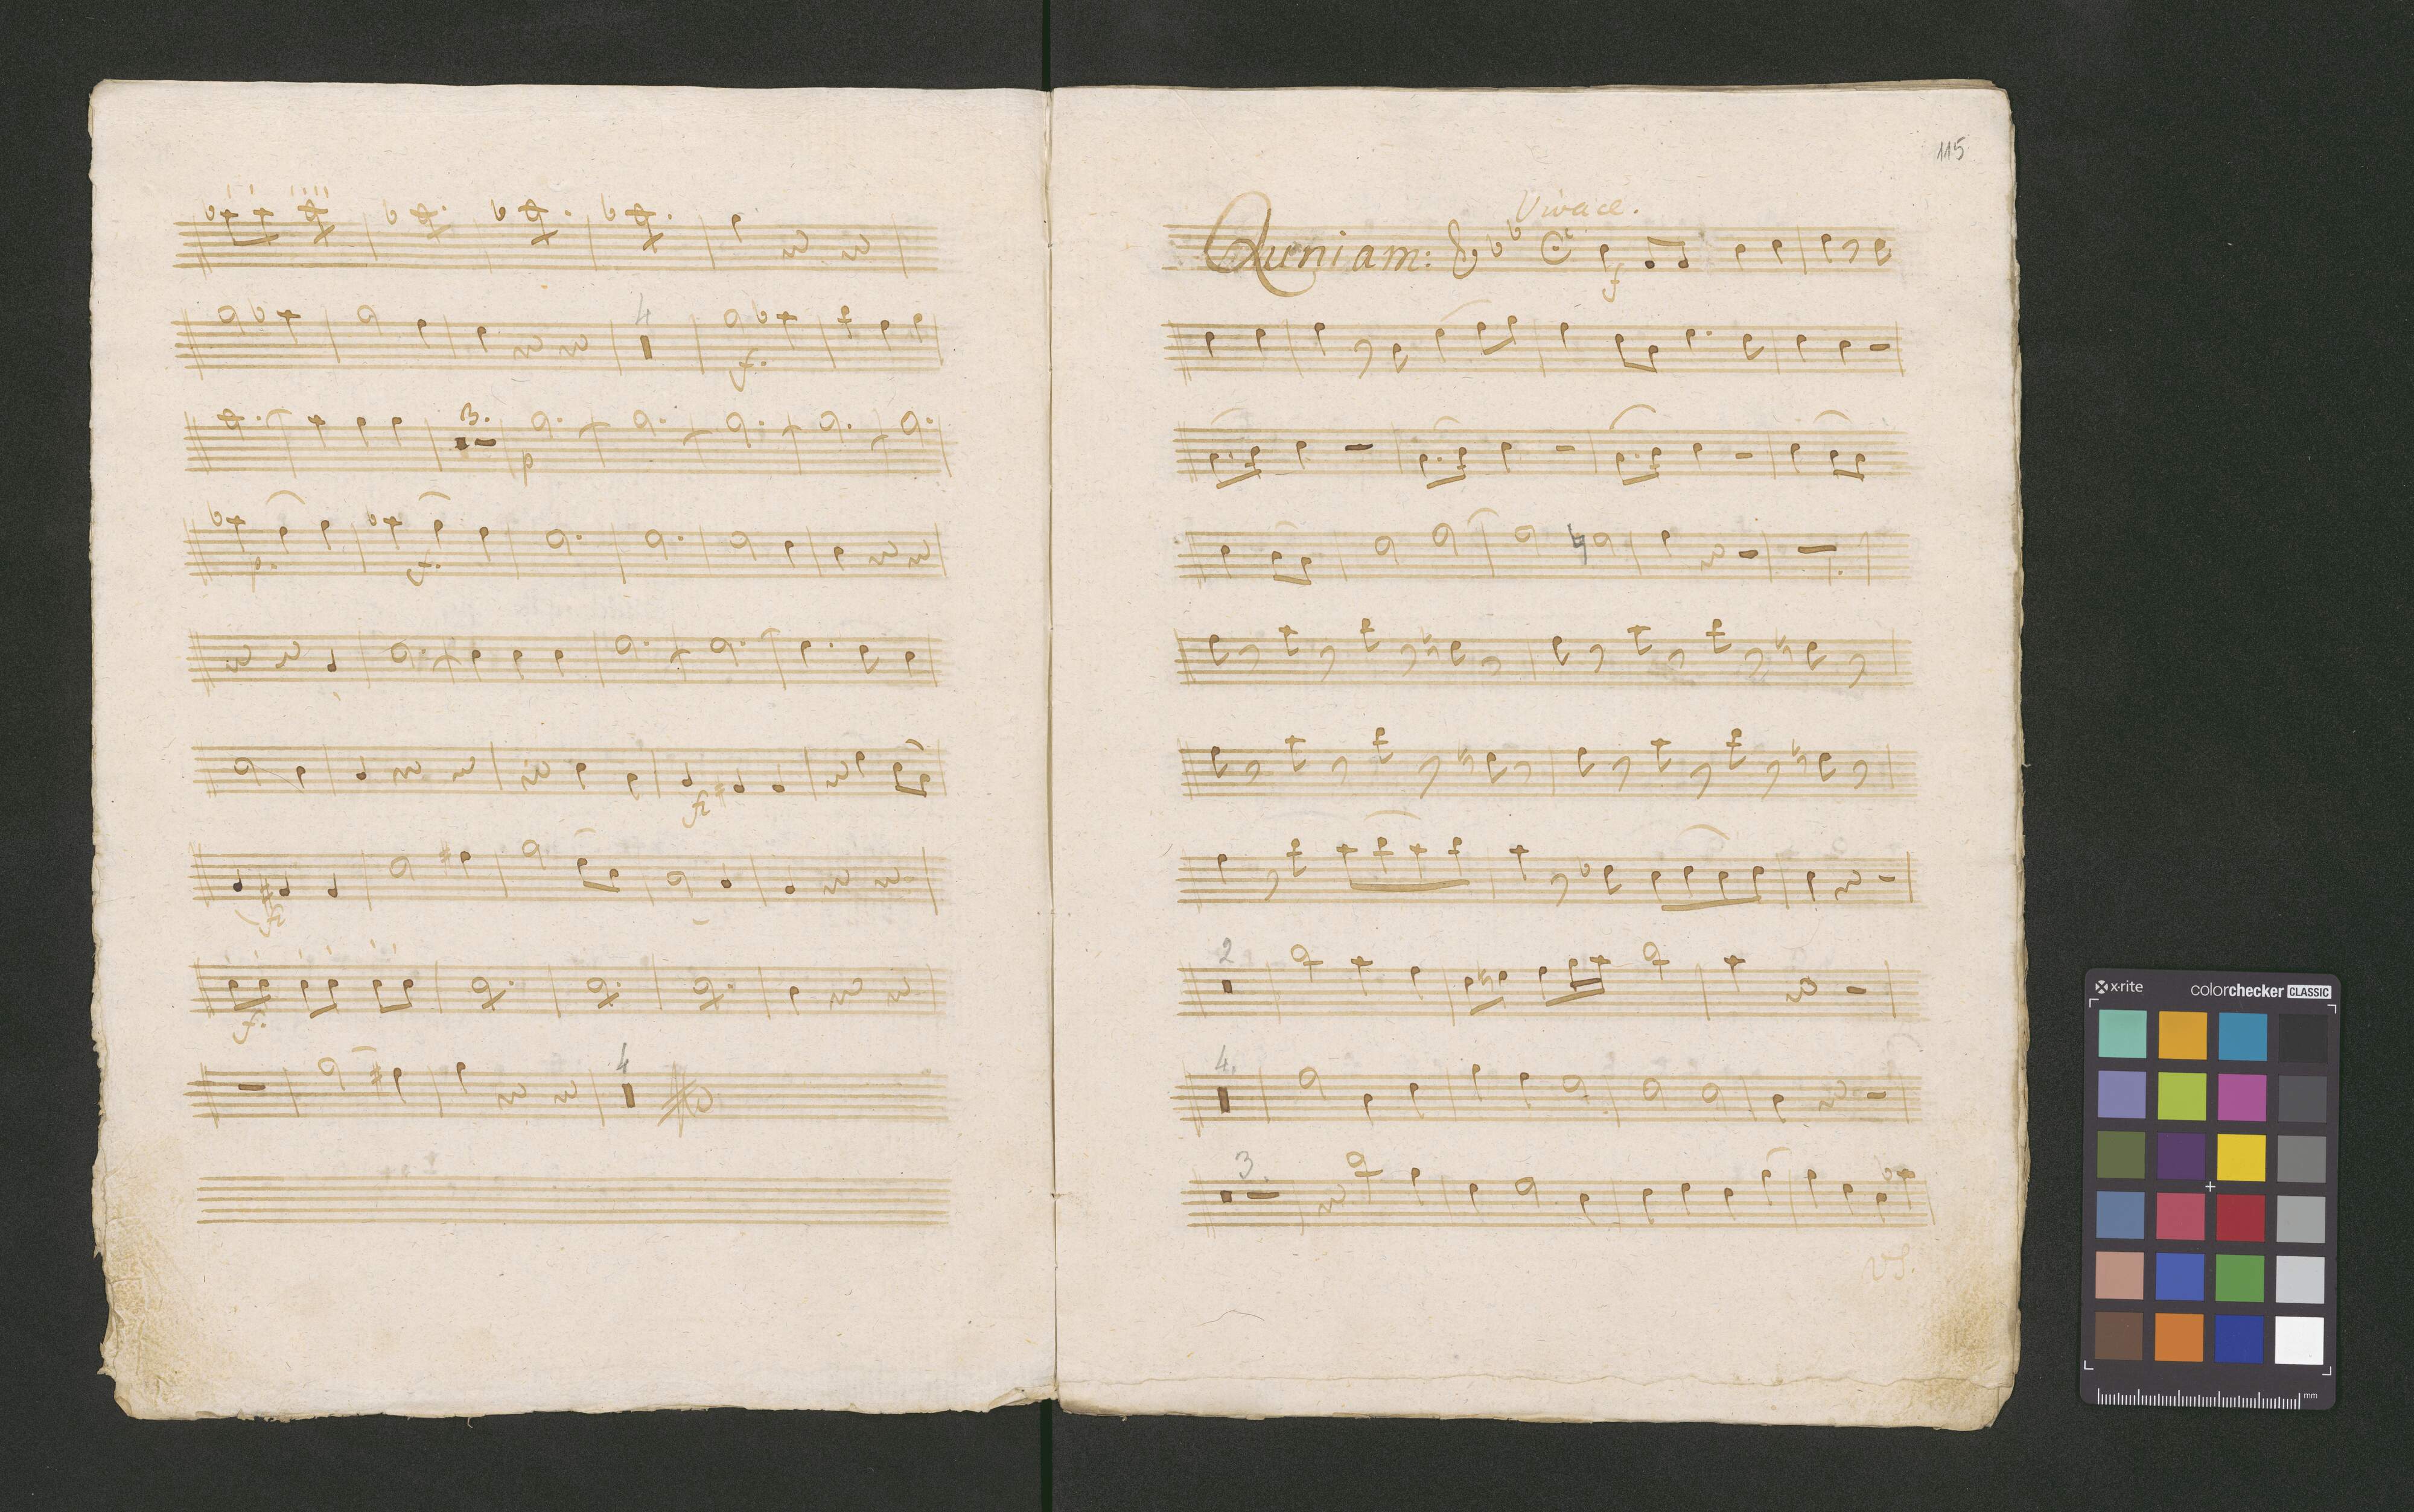 4
f.
3.
p
p.
f.
fz
fz
f.
4
115
Vivace.
Quniam:
f
2
4.
3.
VS.
x-rite
colorchecker CLASSIC
mm